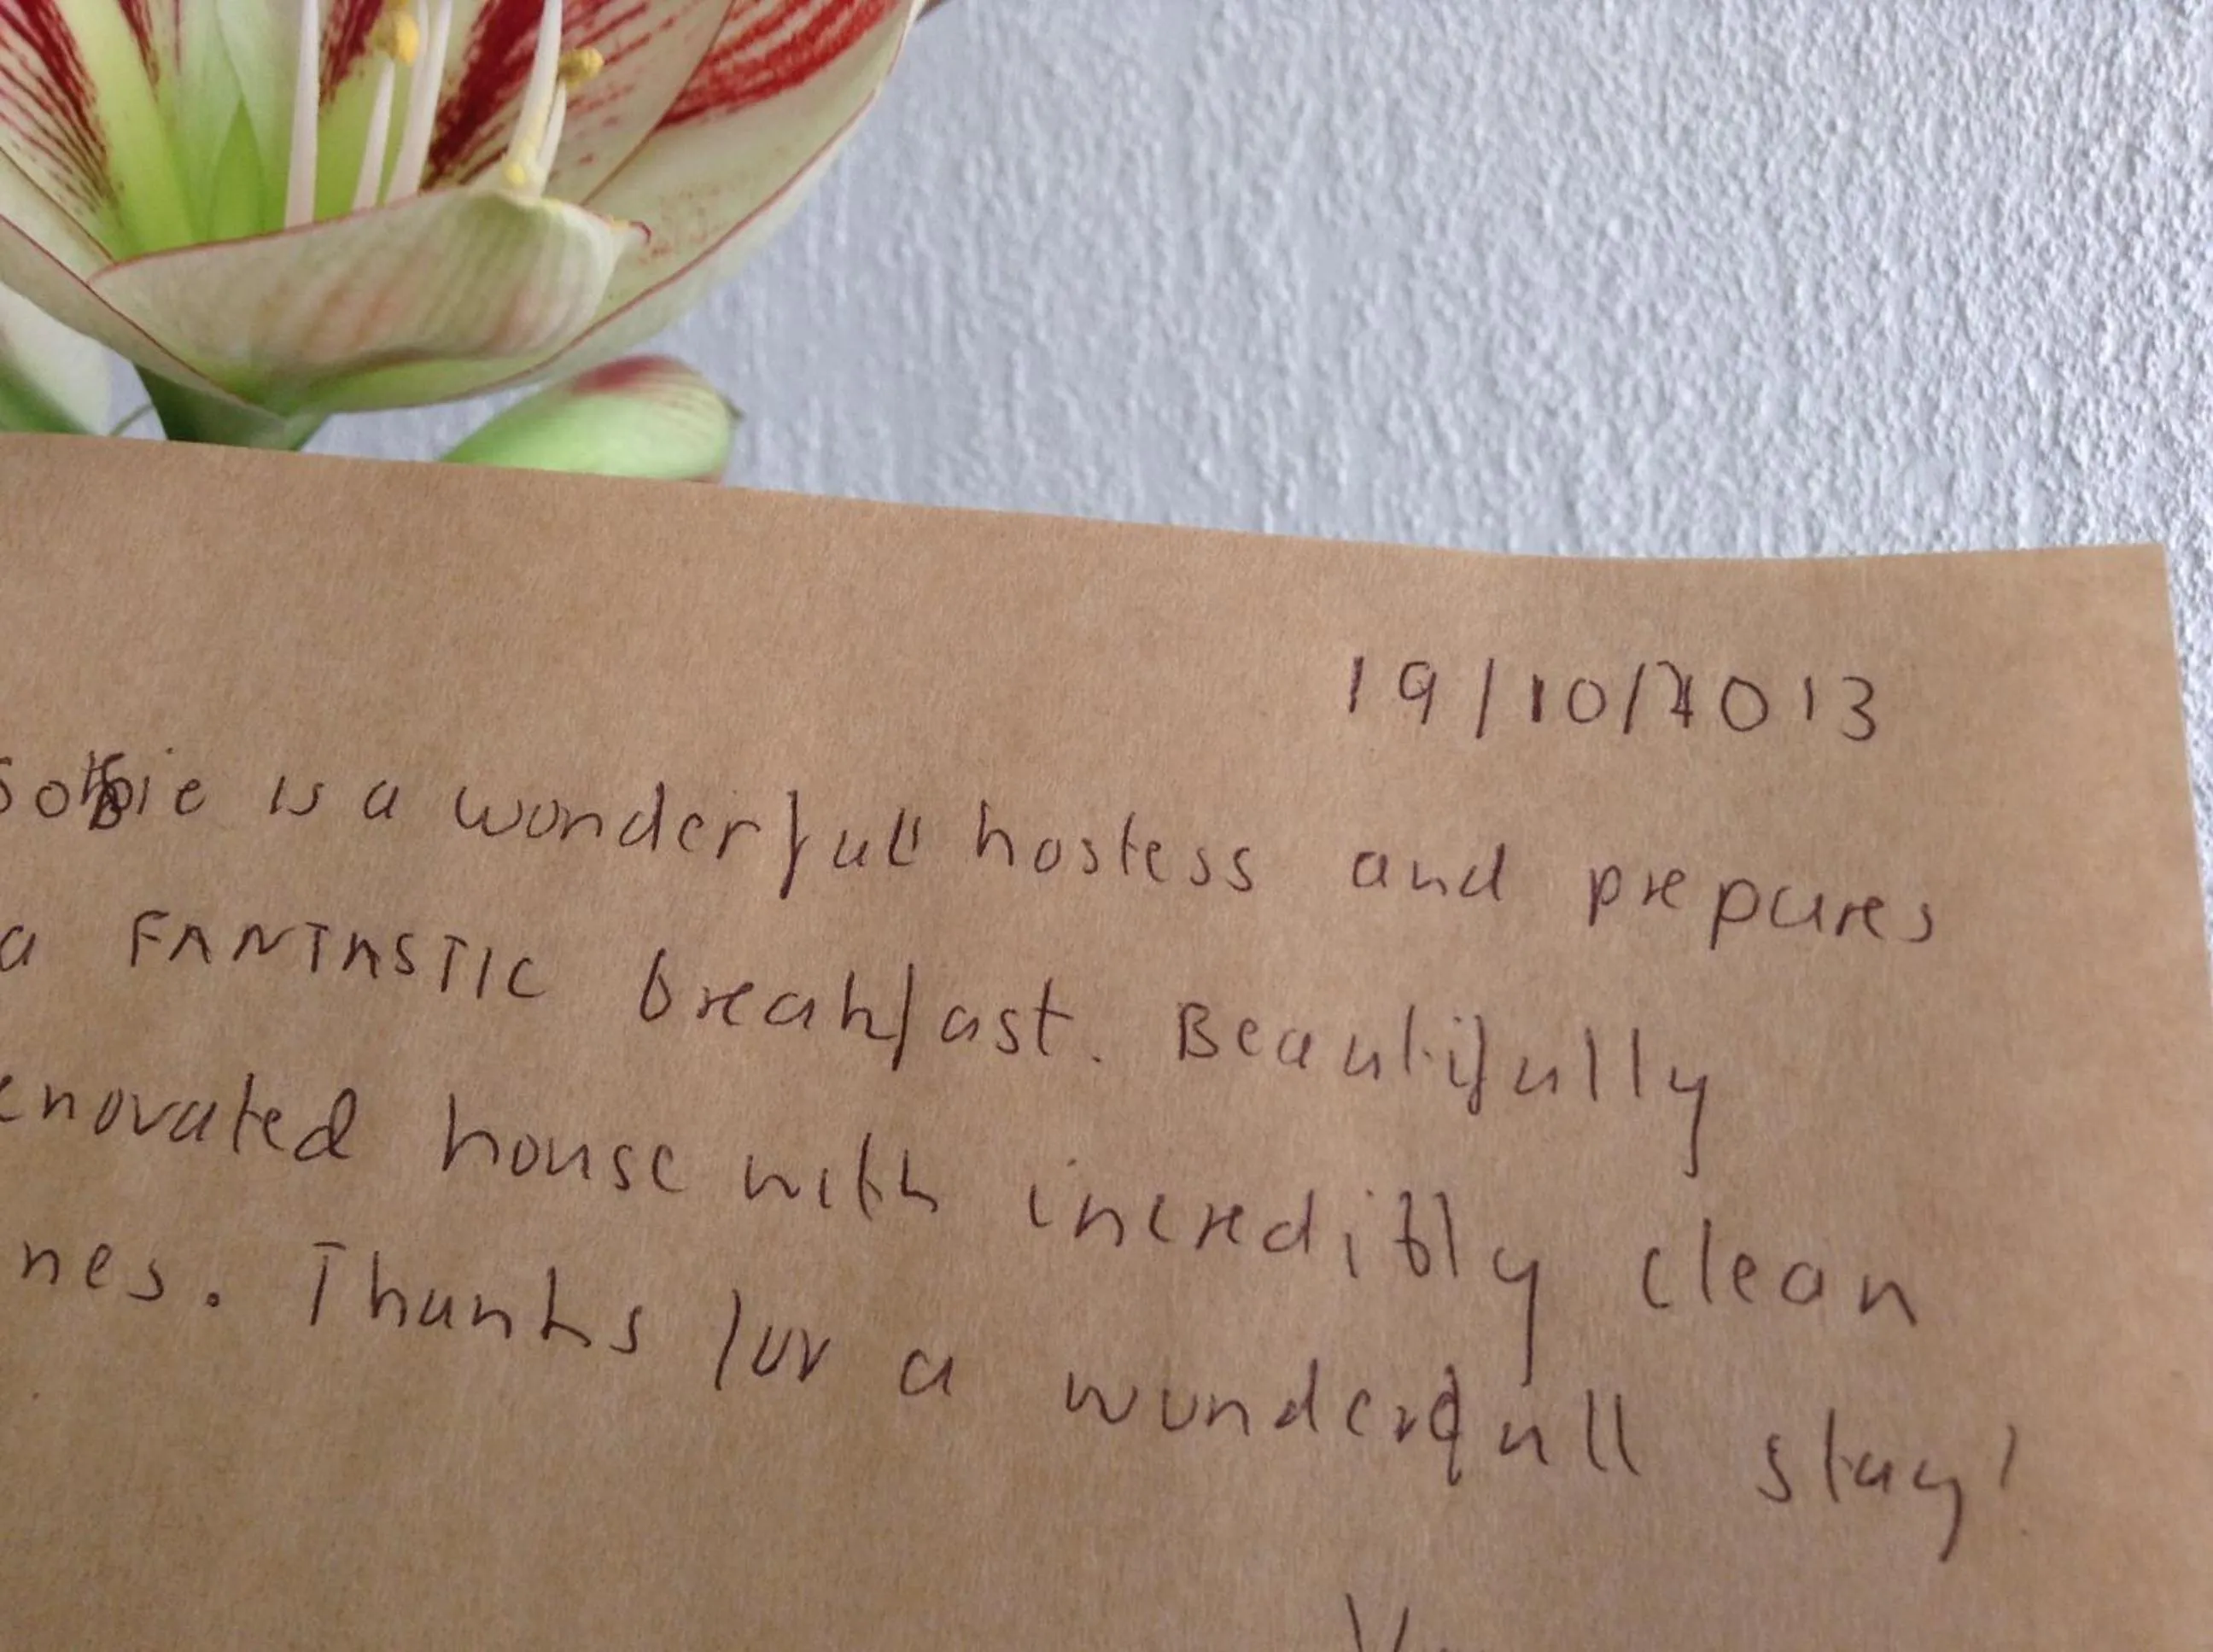 19/10/2013
is a wonderfull hostess and prepares
a FANTASTIC breakfast. Beautifully
enovated house with incredibly clean
nes. Thanks for a wonderfull stay!